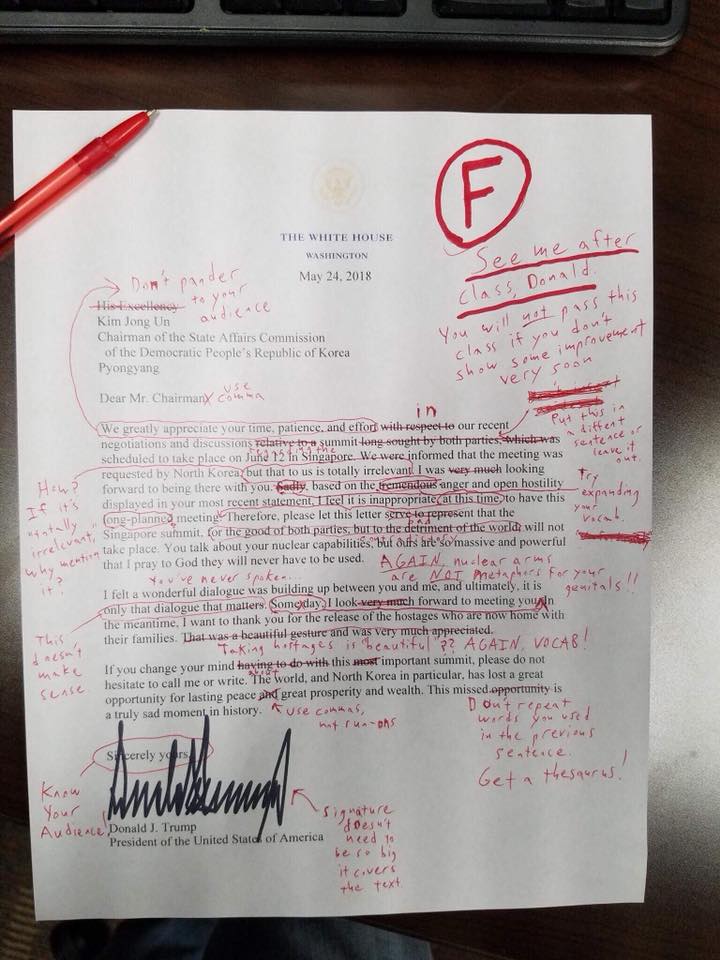 F
See me after
class, Donald.
You will not pass this
class if you don't
show some improvement
very soon
THE WHITE HOUSE
WASHINGTON
May 24, 2018
Don't pander
to your
audience
His Excellency
Kim Jong Un
Chairman of the State Affairs Commission
of the Democratic People's Republic of Korea
Pyongyang
Dear Mr. Chairman
use
comma
in
We greatly appreciate your time, patience, and effort with respect to our recent
negotiations and discussions relative to a summit long sought by both parties, which was
regarding the
scheduled to take place on June 12 in Singapore. We were informed that the meeting was
requested by North Korea, but that to us is totally irrelevant. I was very much looking
forward to being there with you. Sadly, based on the tremendous anger and open hostility
displayed in your most recent statement, I feel it is inappropriate, at this time, to have this
long-planned meeting. Therefore, please let this letter serve to represent that the
Singapore summit, for the good of both parties, but to the detriment of the world, will not
take place. You talk about your nuclear capabilities, but ours are so massive and powerful
that I pray to God they will never have to be used.
Put this in
a differnt
sentence or
leave it
out.
Try
expanding
your
vocab.
How?
If it's
"totally
irrelevant,"
why mention
it?
bad
contradictory
AGAIN, nuclear arms
are NOT metaphors for your
genitals!!
You've never spoken...
I felt a wonderful dialogue was building up between you and me, and ultimately, it is
only that dialogue that matters. Some day, I look very much forward to meeting you. In
the meantime, I want to thank you for the release of the hostages who are now home with
their families. That was a beautiful gesture and was very much appreciated.
This
doesn't
make
sense
Taking hostages is "beautiful"?? AGAIN, VOCAB!
If you change your mind having to do with this most important summit, please do not
about
hesitate to call me or write. The world, and North Korea in particular, has lost a great
opportunity for lasting peace and great prosperity and wealth. This missed opportunity is
a truly sad moment in history.
use commas,
not run-ons
Don't repeat
words you used
in the previous
sentence.
Get a thesaurus!
Sincerely yours,
Know
Your
Audience!
Donald J. Trump
President of the United States of America
signature
doesn't
need to
be so big
it covers
the text